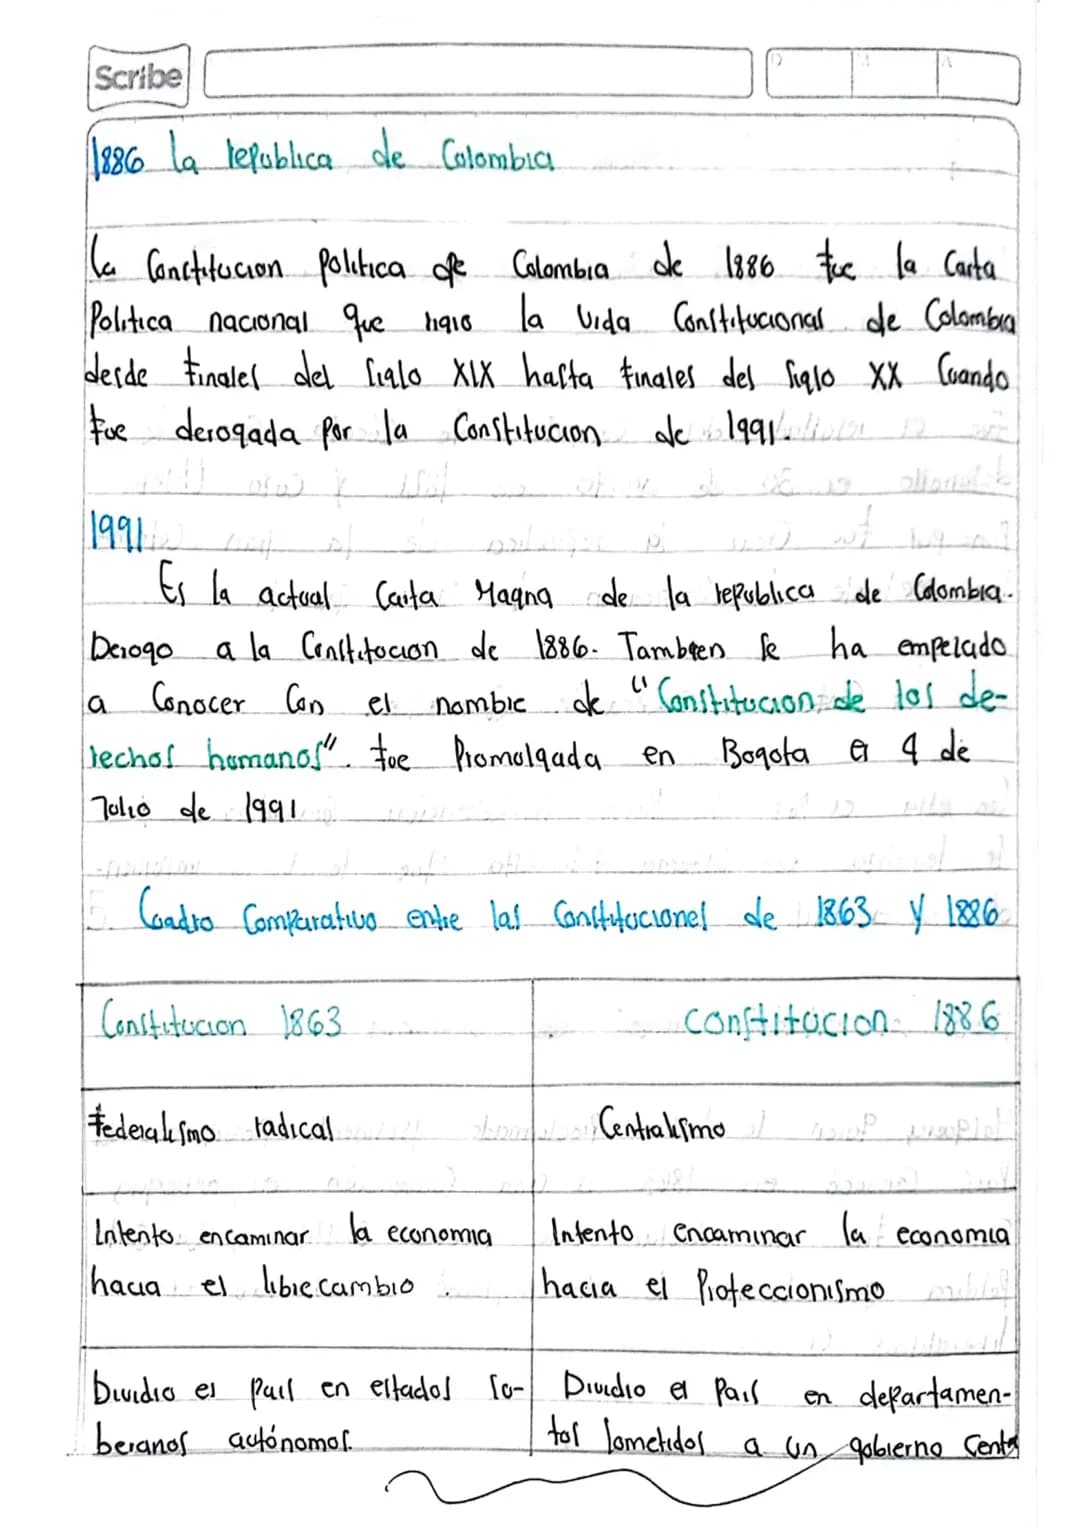 Scribe
1886 la republica de Colombia
La Constitucion Politica de Colombia de 1886 fue la Carta
Politica nacional que rigio la vida Constitucional de Colombia
desde finales del siglo XIX hasta finales del siglo XX Cuando
fue derogada por la Constitucion de 1991.
1991
Es la actual Carta Magna de la republica de Colombia.
Derogo a la Constitucion de 1886. Tambien se ha empelado
a Conocer Con el nombre de "Constitucion de los de-
rechos humanos". fue Promulgada en Bogota el 4 de
Julio de 1991
Cuadro Comparativo entre las Constituciones de 1863 y 1886
Constitucion 1863
constitucion 1886
federalismo radical
Centralismo
Intento encaminar la economia
hacia el librecambio.
Intento encaminar la economia
hacia el Proteccionismo
Dividio el pais en estados so-
beranos autónomos.
Dividio el Pais en departamen-
tos sometidos a un gobierno Central